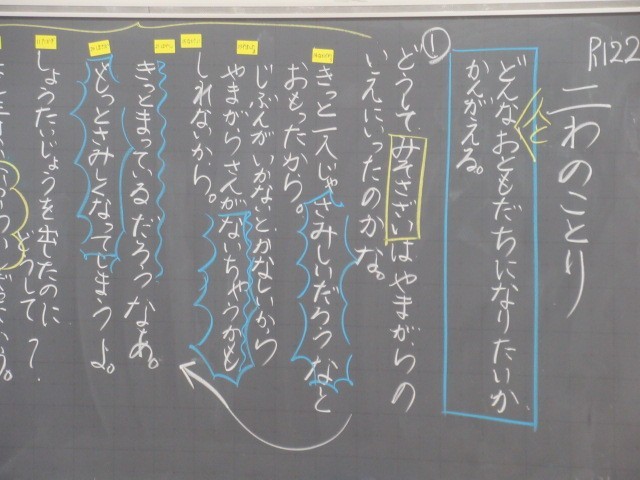 R122
二わのことり
と
どんなおともだちになりたいか
かんがえる。
①
どうして、みそさざいはやまがらの
いえにいったのかな。
きっと一人じゃさみしいだろうなと
おもったから。
じぶんがいかないとかなしいから
やまがらさんがないちゃうかも
しれないから。
きっとまっているだろうなあ。
もっとさみしくなってしまうよ。
しょうたいじょうを出したのに
どうして？